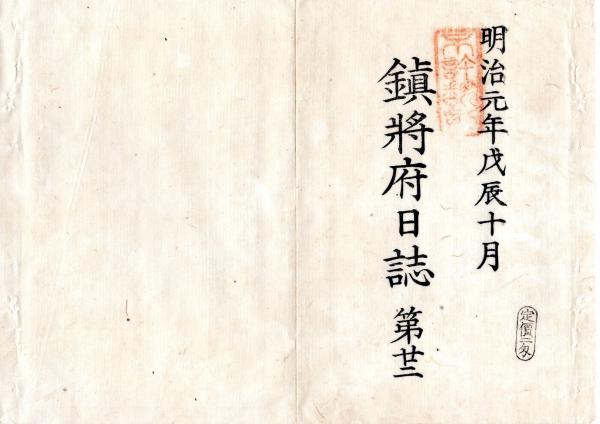 明治元年戊辰十月
鎭將府日誌 第廿二
定價二匁